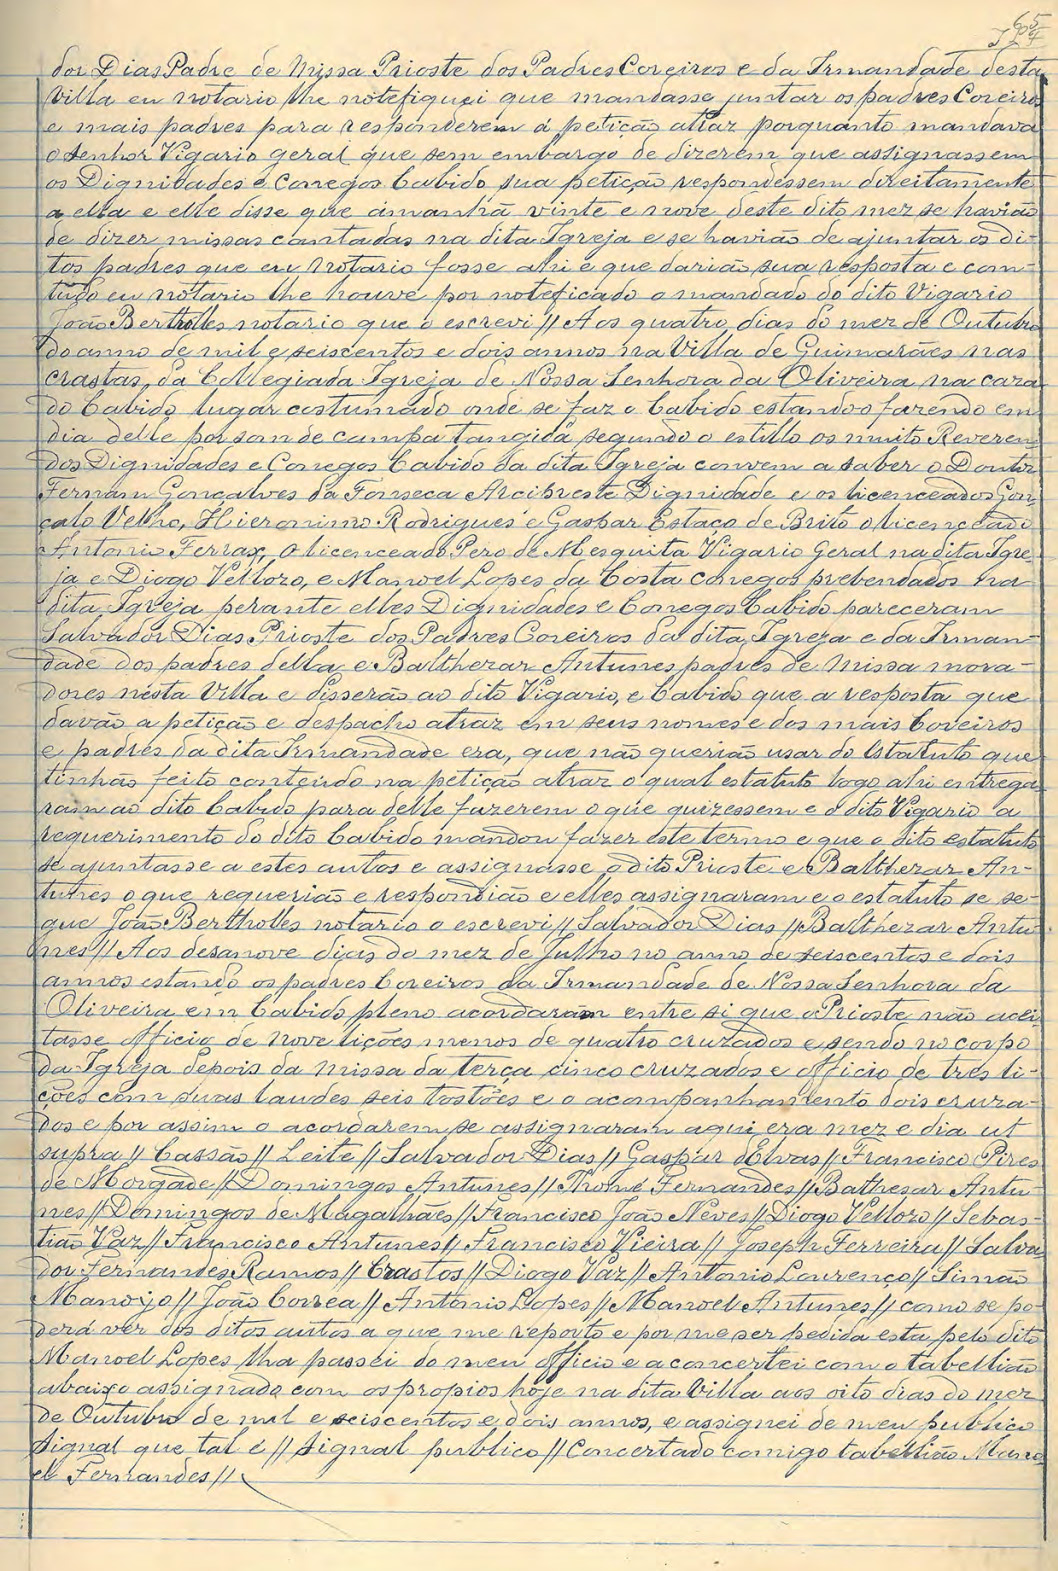 65
dor Dias Padre de Missa Prioste dos Padres Coreiros e da Irmandade desta
Villa eu notario lhe notefiquei que mandasse juntar os padres Coreiros
e mais padres para responderem á petição atraz porquanto mandava
o Senhor Vigario geral que sem embargo de dizerem que assignassem
os Dignidades e Conegos Cabido sua petição respondessem direitamente
a ella e elle disse que ámanhã vinte e nove deste dito mez se havião
de dizer missas cantadas na dita Igreja e se havião de ajuntar os di-
tos padres que eu notario fosse ahi e que darião sua resposta e com-
tudo eu notario lhe houve por noteficado o mandado do dito Vigario
João Bertholles notario que o escrevi // Aos quatro dias do mez de Outubro
do anno de mil e seiscentos e dois annos na Villa de Guimarães nas
crastas, da Collegiada Igreja de Nossa Senhora da Oliveira na caza
do Cabido lugar costumado onde se faz o Cabido estando o fazendo em
dia delle por som de campa tangida segundo o estillo os muito Reveren-
dos Dignidades e Conegos Cabido da dita Igreja convem a saber o Doutor
Fernam Gonçalves da Fonseca Arcipreste Dignidade e os licenceados Gon-
çalo Velho, Hieronimo Rodrigues e Gaspar Estaço de Brito o licenceado
Antonio Ferraz, o licenceado Pero de Mesquita Vigario Geral na dita Igre-
ja e Diogo Vellozo, e Manoel Lopes da Costa conegos prebendados na
dita Igreja perante elles Dignidades e Conegos Cabido pareceram
Salvador Dias Prioste dos Padres Coreiros da dita Igreja e da Irman-
dade dos padres della e Balthezar Antunes padres de missa mora-
dores nesta Villa e disserão ao dito Vigario, e Cabido que a resposta que
davão a petição e despacho atraz em seus nomes e dos mais Coreiros
e padres da dita Irmandade era, que não querião usar do Estatuto que
tinhão feito conteudo na petição atraz o qual estatuto logo ahi entrega-
ram ao dito Cabido para delle fazerem o que quizessem e o dito Vigario a
requerimento do dito Cabido mandou fazer este termo e que o dito estatuto
se ajuntasse a estes autos e assignasse o dito Prioste e Balthezar An-
tunes o que requerião e respondião e elles assignaram e o estatuto se se-
gue João Bertholles notario o escrevi // Salvador Dias // Balthezar Antu-
nes // Aos desanove dias do mez de Julho no anno de seiscentos e dois
annos estando os padres Coreiros da Irmandade de Nossa Senhora da
Oliveira em Cabido pleno acordaram entre si que o Prioste não acei-
tasse officio de nove lições menos de quatro cruzados e sendo no corpo
da Igreja depois da missa da terça cinco cruzados e officio de tres li-
ções com suas laudes seis tostões e o acompanhamento dois cruza-
dos e por assim o acordarem se assignaram aqui era mez e dia ut
supra // Cassão // Leite // Salvador Dias // Gaspar d'Elvas // Francisco Pires
de Morgade // Domingos Antunes // Thomé Fernandes // Balthesar Antu-
nes // Domingos de Magalhães // Francisco João Neves // Diogo Vellozo // Sebas-
tião Vaz // Francisco Antunes // Francisco Vieira // Joseph Ferreira // Salva-
dor Fernandes Ramos // Crastos // Diogo Vaz // Antonio Lourenço // Simão
// João Correa // Antonio Lopes // Manoel Antunes // como se po-
derá ver dos ditos autos a que me reporto e por me ser pedida esta pelo dito
Manoel Lopes lha passei do meu officio e a concertei com o tabellião
abaixo assignado com os propios hoje na dita Villa aos oito dias do mez
de Outubro de mil e seiscentos e dois annos, e assignei de meu publico
signal que tal é // signal publico // Concertado comigo tabellião Mano-
el Fernandes //